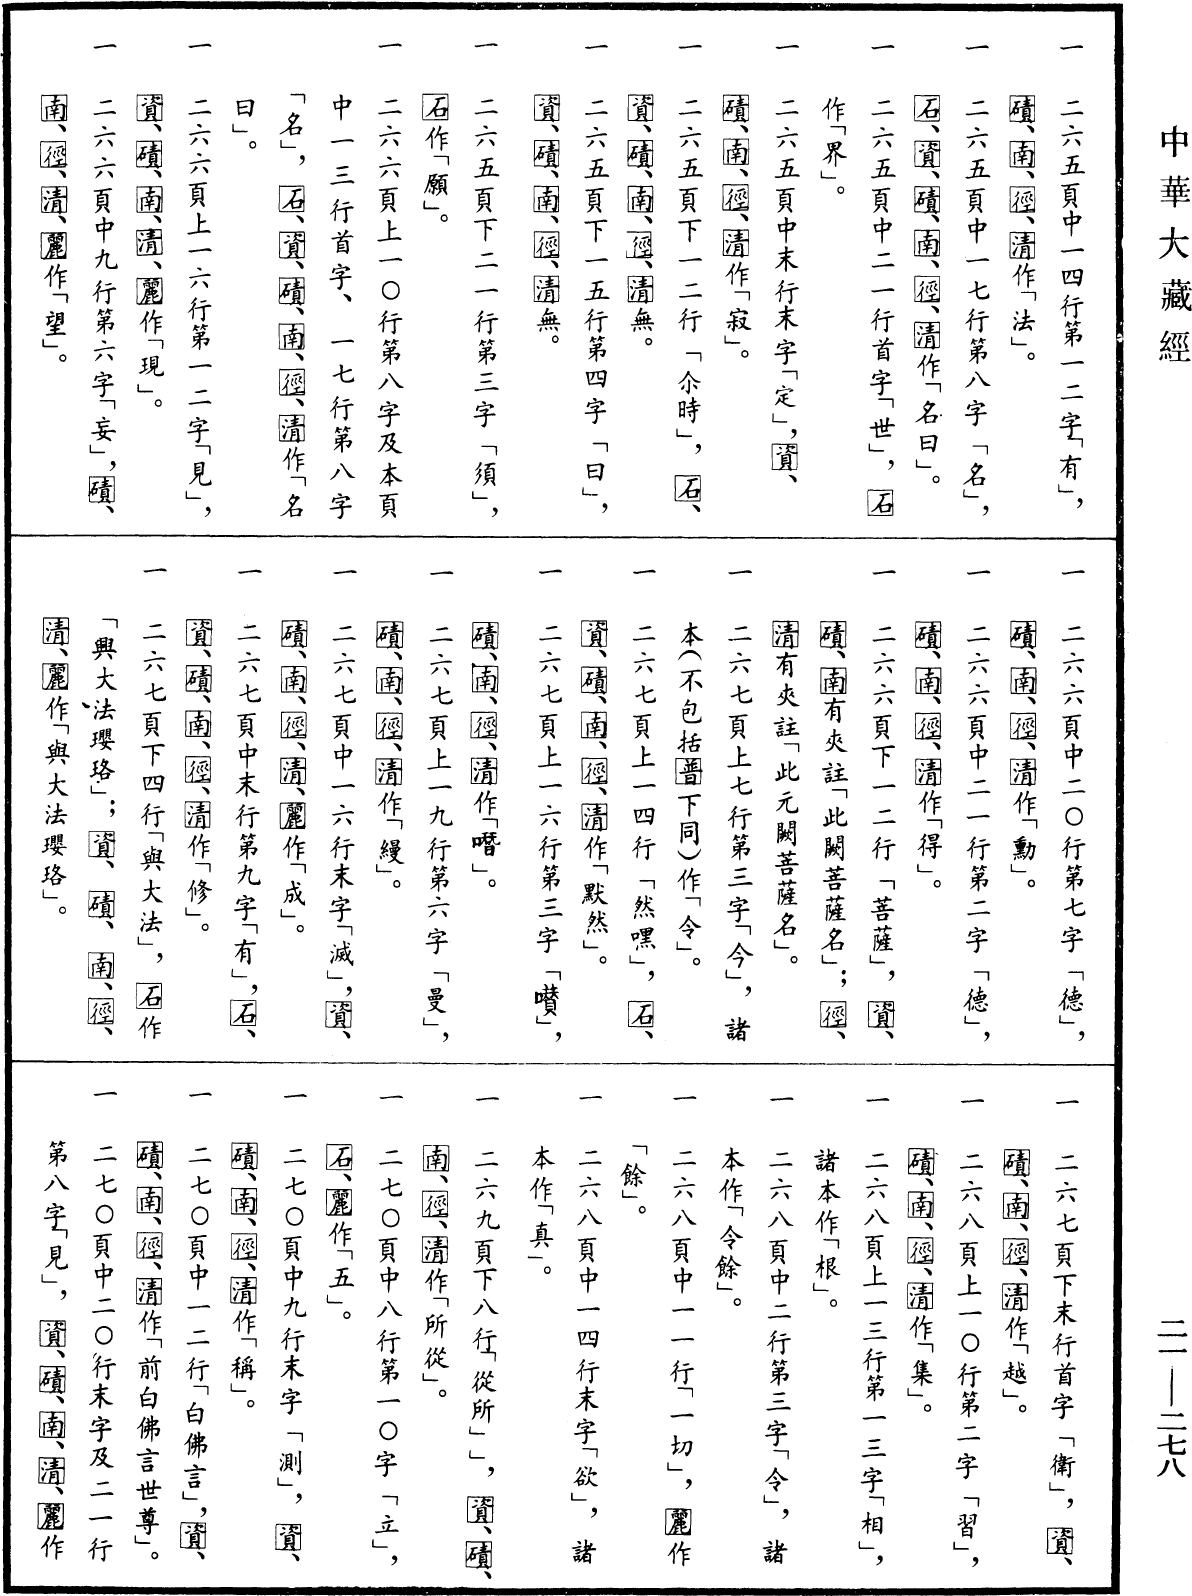 中華大藏經
二一——二七八
一　二六五頁中一四行第一二字「有」，
磧、南、徑、清作「法」。
一　二六五頁中一七行第八字「名」，
石、資、磧、南、徑、清作「名曰」。
一　二六五頁中二一行首字「世」，石
作「界」。
一　二六五頁中末行末字「定」，資、
磧、南、徑、清作「寂」。
一　二六五頁下一二行「尒時」，石、
資、磧、南、徑、清無。
一　二六五頁下一五行第四字「曰」，
資、磧、南、徑、清無。
一　二六五頁下二一行第三字「須」，
石作「願」。
一　二六六頁上一〇行第八字及本頁
中一三行首字、一七行第八字
「名」，石、資、磧、南、徑、清作「名
曰」。
一　二六六頁上一六行第一二字「見」，
資、磧、南、清、麗作「現」。
一　二六六頁中九行第六字「妄」，磧、
南、徑、清、麗作「望」。
一　二六六頁中二〇行第七字「德」，
磧、南、徑、清作「勳」。
一　二六六頁中二一行第二字「德」，
磧、南、徑、清作「得」。
一　二六六頁下一二行「菩薩」，資、
磧、南有夾註「此闕菩薩名」；徑、
清有夾註「此元闕菩薩名」。
一　二六七頁上七行第三字「今」，諸
本（不包括普下同）作「令」。
一　二六七頁上一四行「然嘿」，石、
資、磧、南、徑、清作「默然」。
一　二六七頁上一六行第三字「囋」，
磧、南、徑、清作「㗱」。
一　二六七頁上一九行第六字「曼」，
磧、南、徑、清作「縵」。
一　二六七頁中一六行末字「滅」，資、
磧、南、徑、清、麗作「成」。
一　二六七頁中末行第九字「有」，石、
資、磧、南、徑、清作「修」。
一　二六七頁下四行「與大法」，石作
「興大法瓔珞」；資、磧、南、徑、
清、麗作「與大法瓔珞」。
一　二六七頁下末行首字「衛」，資、
磧、南、徑、清作「越」。
一　二六八頁上一〇行第二字「習」，
磧、南、徑、清作「集」。
一　二六八頁上一三行第一三字「相」，
諸本作「根」。
一　二六八頁中二行第三字「令」，諸
本作「令餘」。
一　二六八頁中一一行「一切」，麗作
「餘」。
一　二六八頁中一四行末字「欲」，諸
本作「真」。
一　二六九頁下八行「從所」」，資、磧、
南、徑、清作「所從」。
一　二七〇頁中八行第一〇字「立」，
石、麗作「五」。
一　二七〇頁中九行末字「測」，資、
磧、南、徑、清作「稱」。
一　二七〇頁中一二行「白佛言」，資、
磧、南、徑、清作「前白佛言世尊」。
一　二七〇頁中二〇行末字及二一行
第八字「見」，資、磧、南、清、麗作